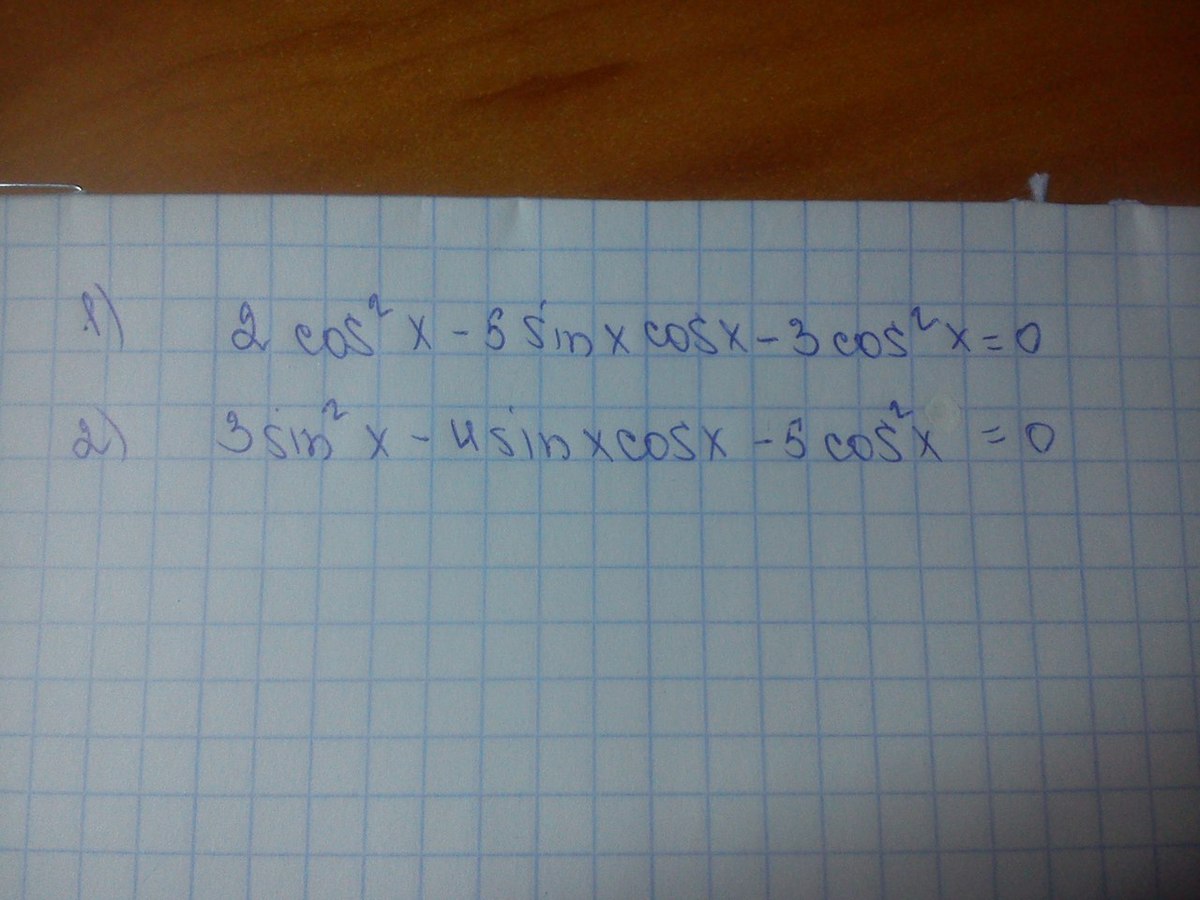 1) 2 cos² x - 5 sin x cos x - 3 cos² x = 0
2) 3 sin² x - 4 sin x cos x - 5 cos² x = 0